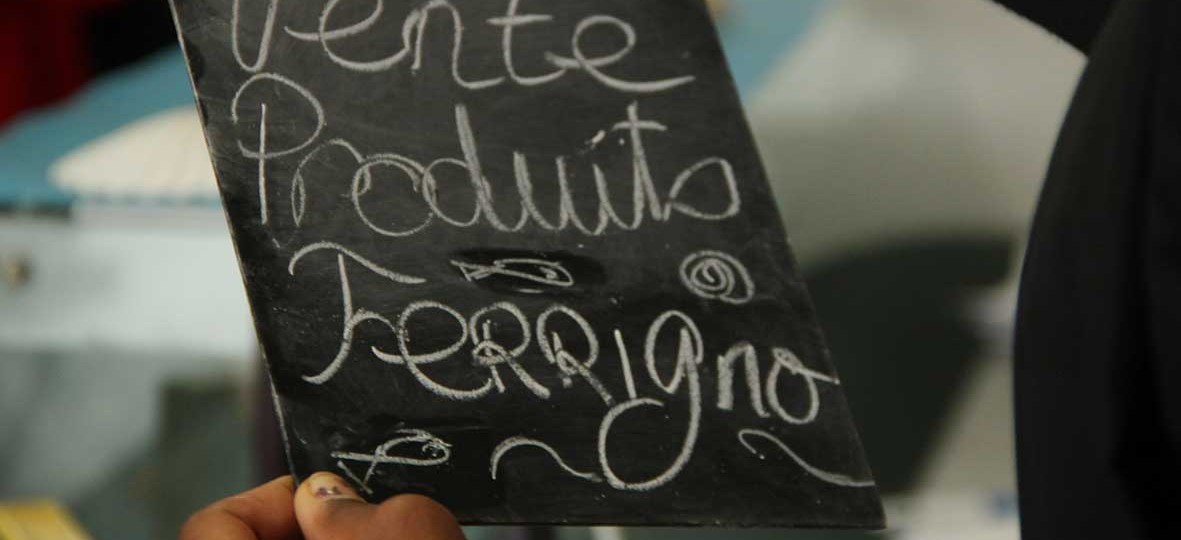 Vente
Produits
Ferrigno